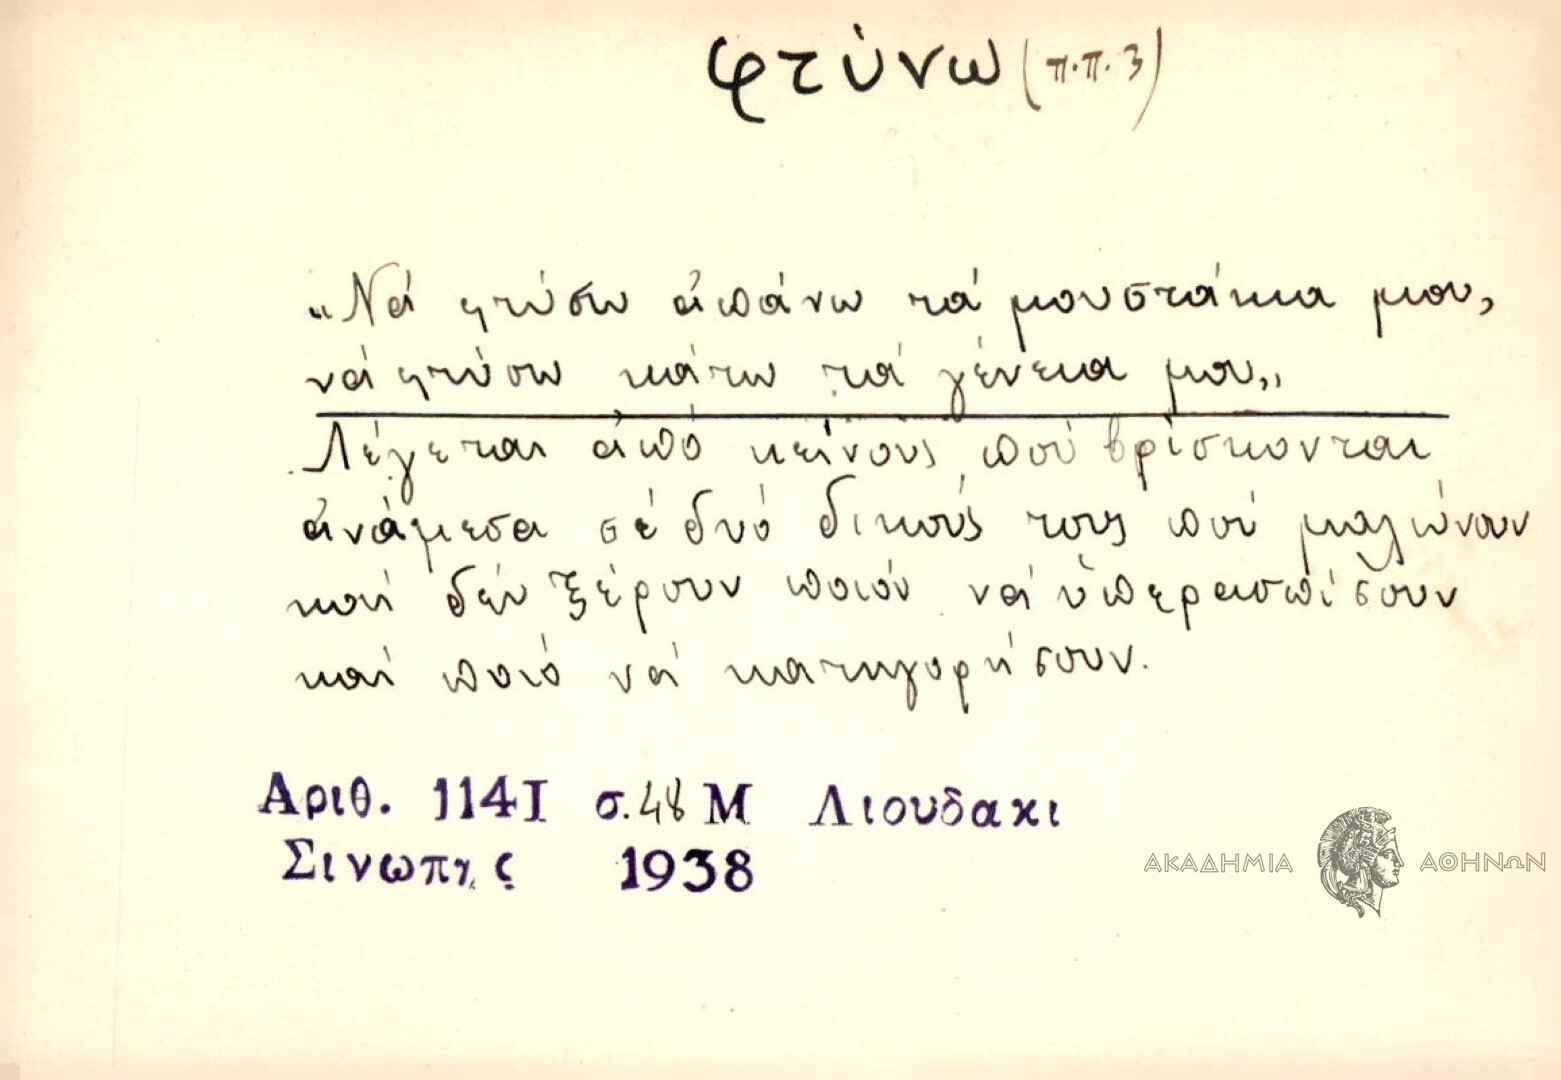 φτύνω (π.π. 3)
„Νά φτύσω ἀπάνω τά μουστάκια μου,
νά φτύσω κάτω τά γένεια μου„
Λέγεται ἀπό κείνους πού βρίσκονται
ἀνάμεσα σέ δυό δικούς τους πού μαλώνουν
καί δέν ξέρουν ποιόν νά ὑπερασπίσουν
καί ποιό νά κατηγορήσουν.
Αριθ. 1141 σ. 48 Μ Λιουδακι
Σινωπης 1938
ΑΚΑΔΗΜΙΑ ΑΘΗΝΩΝ